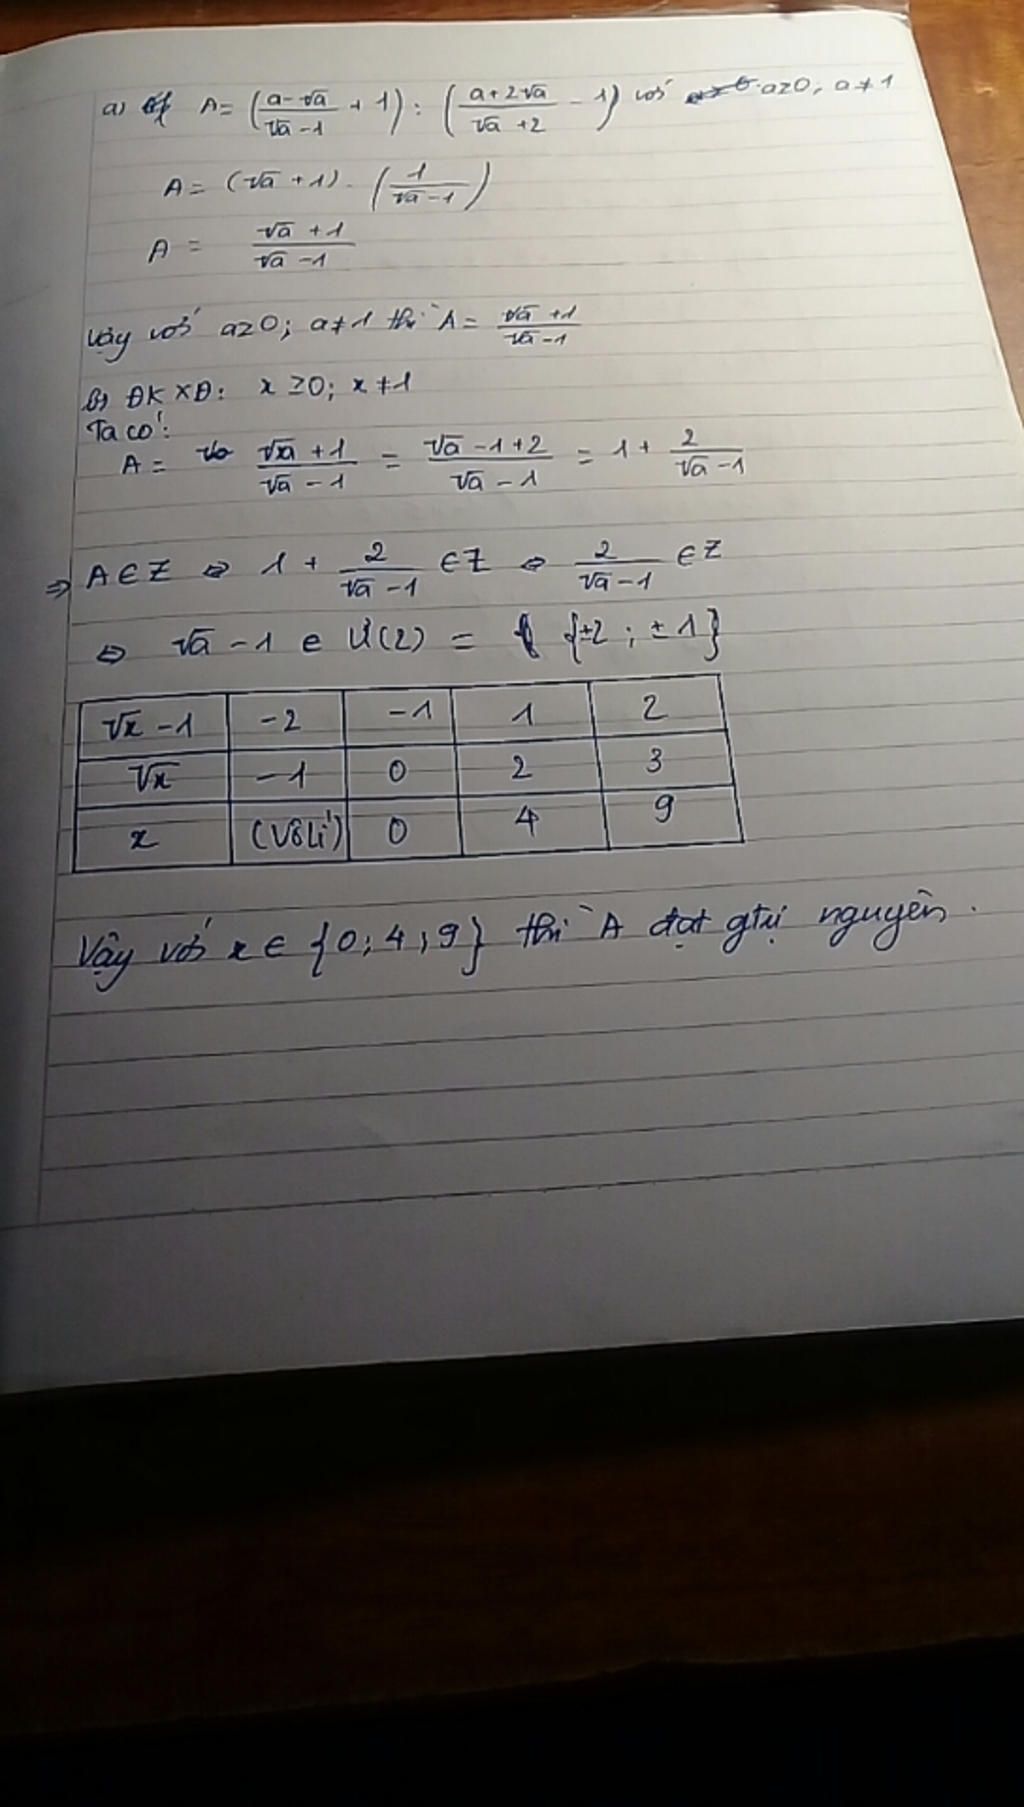 a) A = (a-√a / √a-1 + 1) : (a+2√a / √a+2 - 1) với a≥0; a≠1
A = (√a + 1) . (1 / √a-1)
A = √a + 1 / √a - 1
Vậy với a≥0; a≠1 thì A = √a+1 / √a-1
b) ĐKXĐ: x ≥0; x≠1
Ta có:
A = √a + 1 / √a - 1 = √a - 1 + 2 / √a - 1 = 1 + 2 / √a - 1
⇒ A∈Z ⇔ 1 + 2 / √a - 1 ∈Z ⇔ 2 / √a - 1 ∈Z
⇔ √a - 1 e Ư(2) = {±2; ±1}
√x - 1 -2 -1 1 2
√x -1 0 2 3
x (Vô lí) 0 4 9
Vậy với x∈ {0; 4; 9} thì A đạt gtrị nguyên.